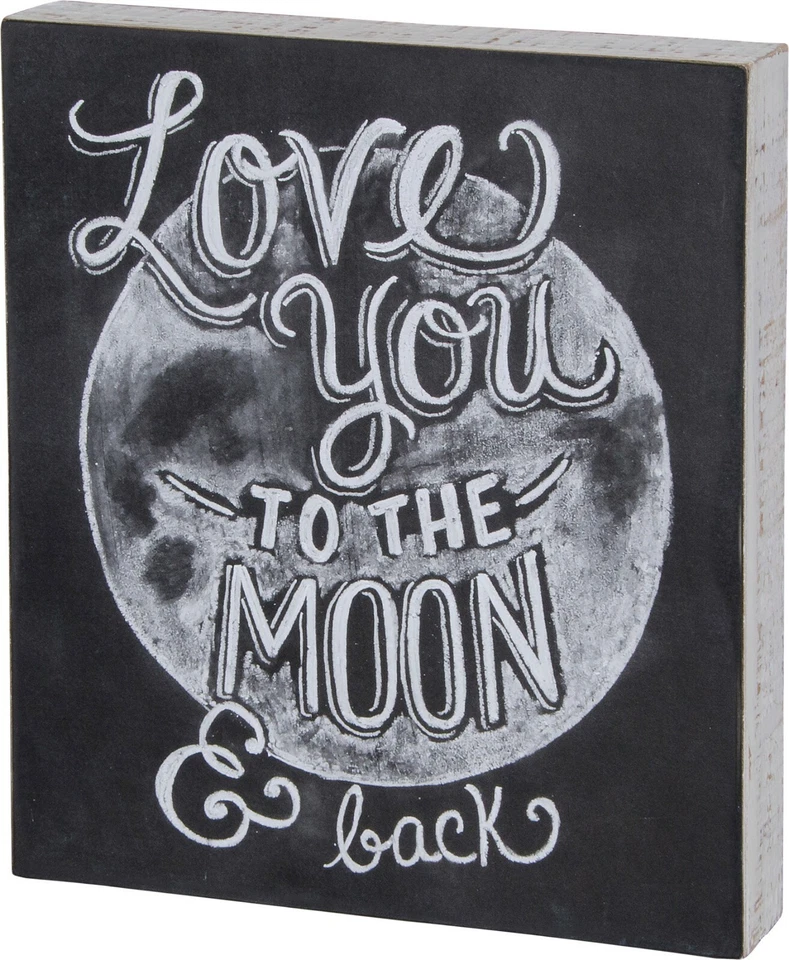 Love
You
TO THE
MOON
& back